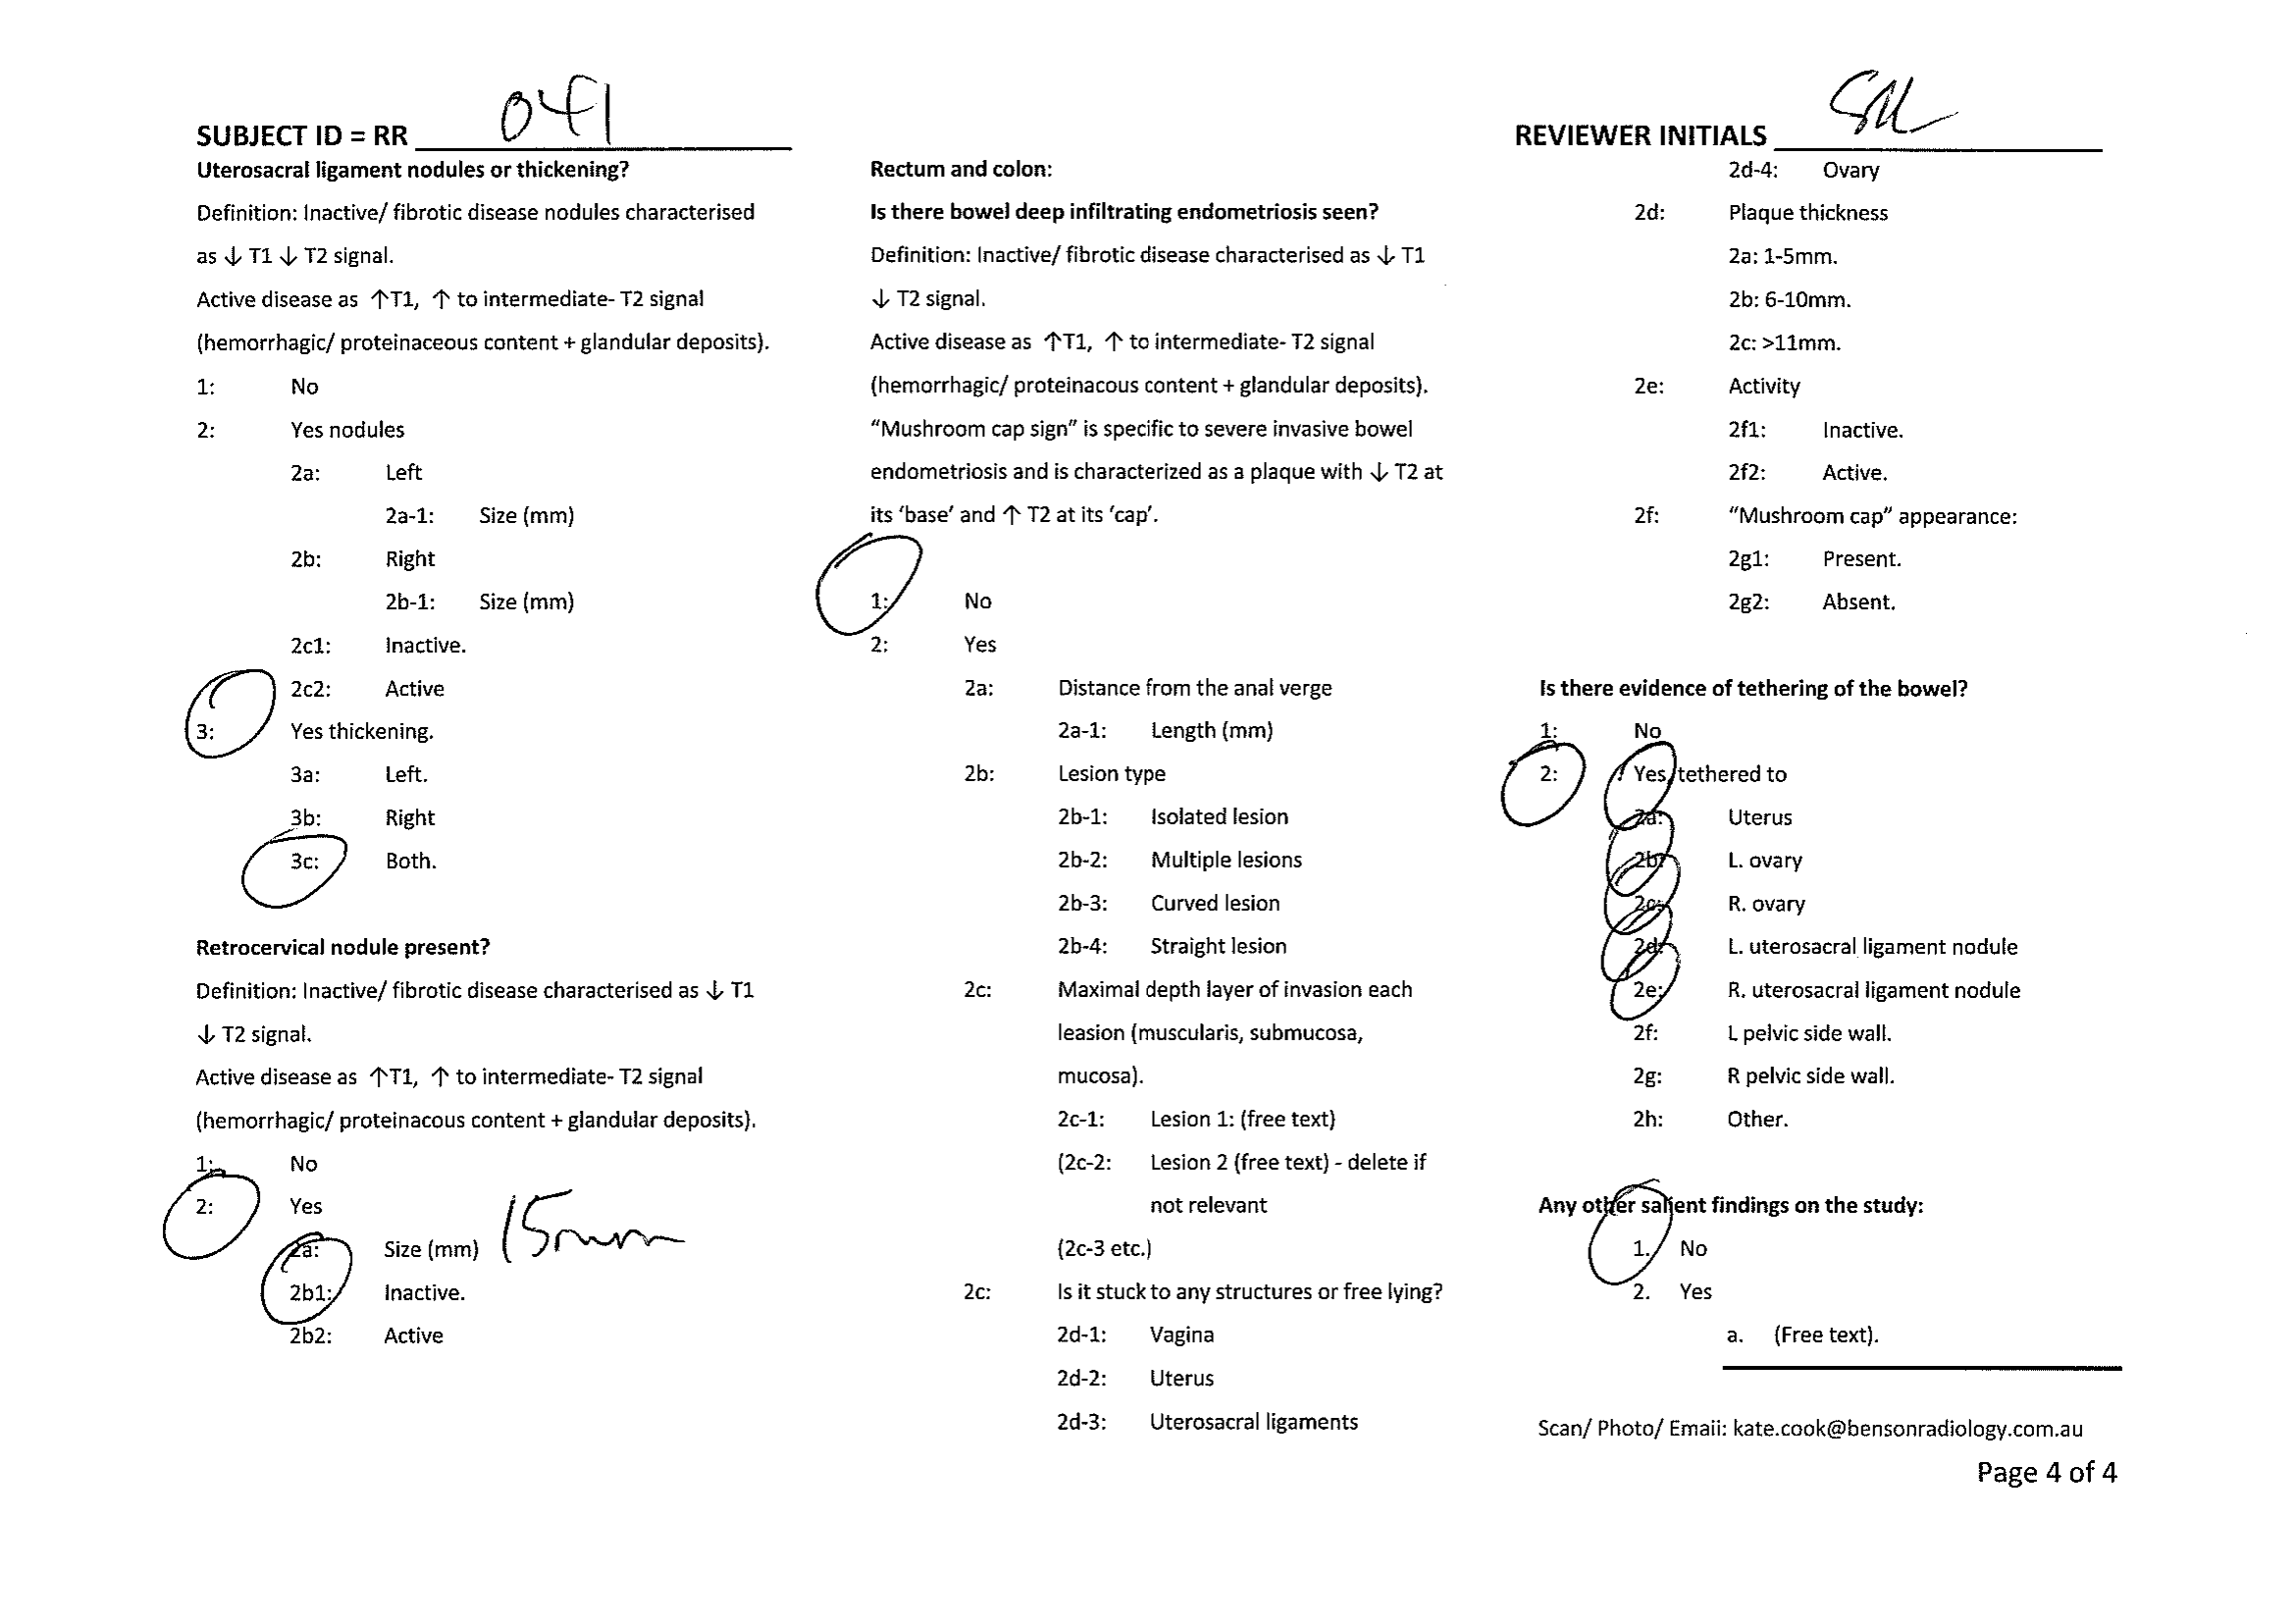 SUBJECT ID = RR 041
REVIEWER INITIALS
Uterosacral ligament nodules or thickening?
Definition: Inactive/ fibrotic disease nodules characterised
as ↓ T1 ↓ T2 signal.
Active disease as ↑T1, ↑ to intermediate- T2 signal
(hemorrhagic/ proteinaceous content + glandular deposits).
1: No
2: Yes nodules
2a: Left
2a-1: Size (mm)
2b: Right
2b-1: Size (mm)
2c1: Inactive.
2c2: Active
3: Yes thickening.
3a: Left.
3b: Right
3c: Both.
Retrocervical nodule present?
Definition: Inactive/ fibrotic disease characterised as ↓ T1
↓ T2 signal.
Active disease as ↑T1, ↑ to intermediate- T2 signal
(hemorrhagic/ proteinacous content + glandular deposits).
1: No
2: Yes
2a: Size (mm) 15mm
2b1: Inactive.
2b2: Active
Rectum and colon:
Is there bowel deep infiltrating endometriosis seen?
Definition: Inactive/ fibrotic disease characterised as ↓ T1
↓ T2 signal.
Active disease as ↑T1, ↑ to intermediate- T2 signal
(hemorrhagic/ proteinacous content + glandular deposits).
“Mushroom cap sign” is specific to severe invasive bowel
endometriosis and is characterized as a plaque with ↓ T2 at
its ‘base’ and ↑ T2 at its ‘cap’.
1: No
2: Yes
2a: Distance from the anal verge
2a-1: Length (mm)
2b: Lesion type
2b-1: Isolated lesion
2b-2: Multiple lesions
2b-3: Curved lesion
2b-4: Straight lesion
2c: Maximal depth layer of invasion each
leasion (muscularis, submucosa,
mucosa).
2c-1: Lesion 1: (free text)
(2c-2: Lesion 2 (free text) - delete if
not relevant
(2c-3 etc.)
2c: Is it stuck to any structures or free lying?
2d-1: Vagina
2d-2: Uterus
2d-3: Uterosacral ligaments
2d-4: Ovary
2d: Plaque thickness
2a: 1-5mm.
2b: 6-10mm.
2c: >11mm.
2e: Activity
2f1: Inactive.
2f2: Active.
2f: “Mushroom cap” appearance:
2g1: Present.
2g2: Absent.
Is there evidence of tethering of the bowel?
1: No
2: Yes, tethered to
2a: Uterus
2b: L. ovary
2c: R. ovary
2d: L. uterosacral ligament nodule
2e: R. uterosacral ligament nodule
2f: L pelvic side wall.
2g: R pelvic side wall.
2h: Other.
Any other salient findings on the study:
1. No
2. Yes
a. (Free text).
Scan/ Photo/ Email: kate.cook@bensonradiology.com.au
Page 4 of 4